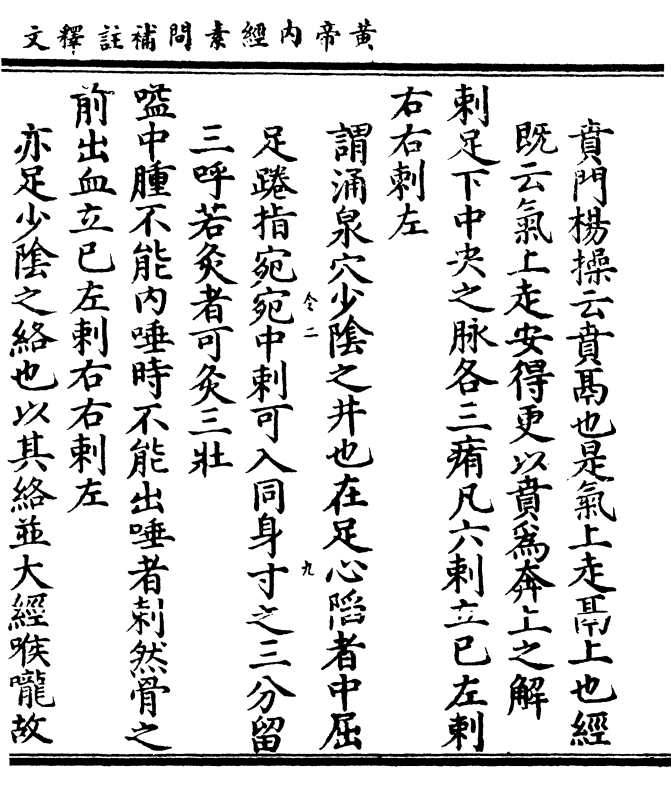 黃帝內經素問補註釋文
賁門楊操云賁鬲也是氣上走鬲上也經
既云氣上走安得更以賁爲奔上之解
刺足下中央之脉各三痏凡六刺立已左刺
右右刺左
謂涌泉穴少陰之井也在足心陷者中屈
足踡指宛宛中刺可入同身寸之三分留
三呼若灸者可灸三壯
嗌中腫不能內唾時不能出唾者刺然骨之
前出血立已左刺右右刺左
亦足少陰之絡也以其絡並大經喉嚨故
令二
九